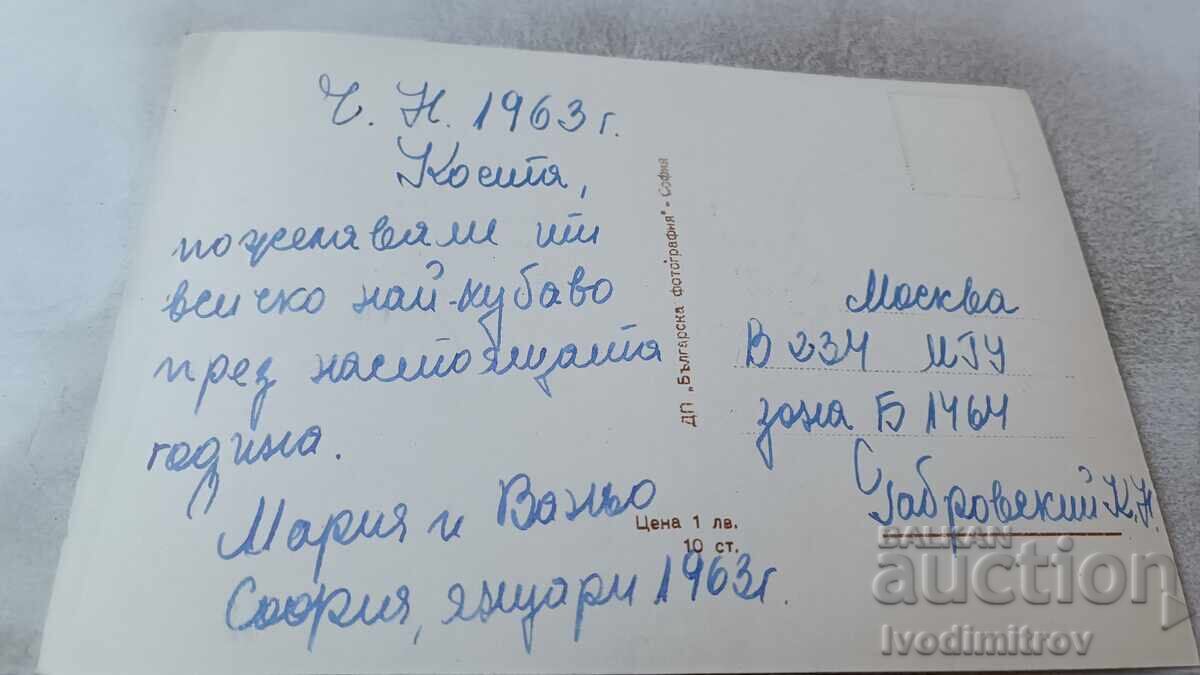 Ч. Н. 1963 г.
Костя,
пожелаваме ти
всичко най-хубаво
през настоящата
година.
Мария и Ваньо
София, януари 1963 г.
ДП „Българска фотография" - София
Цена 1 лв.
10 ст.
Москва
В 234 МГУ
зона Б 1464
Габровский К. Н.
BALKAN
auction
Ivodimitrov